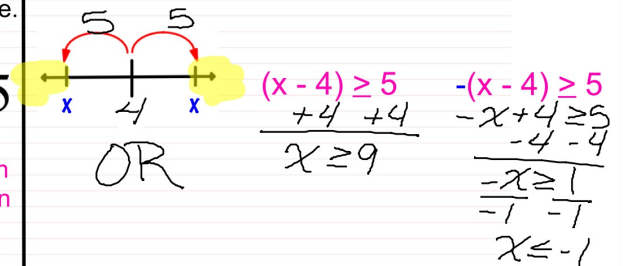 e.
5 5
x 4 x
OR
(x - 4) ≥ 5
+4 +4
x ≥ 9
-(x - 4) ≥ 5
-x + 4 ≥ 5
-4 -4
-x ≥ 1
-1 -1
x ≤ -1
n